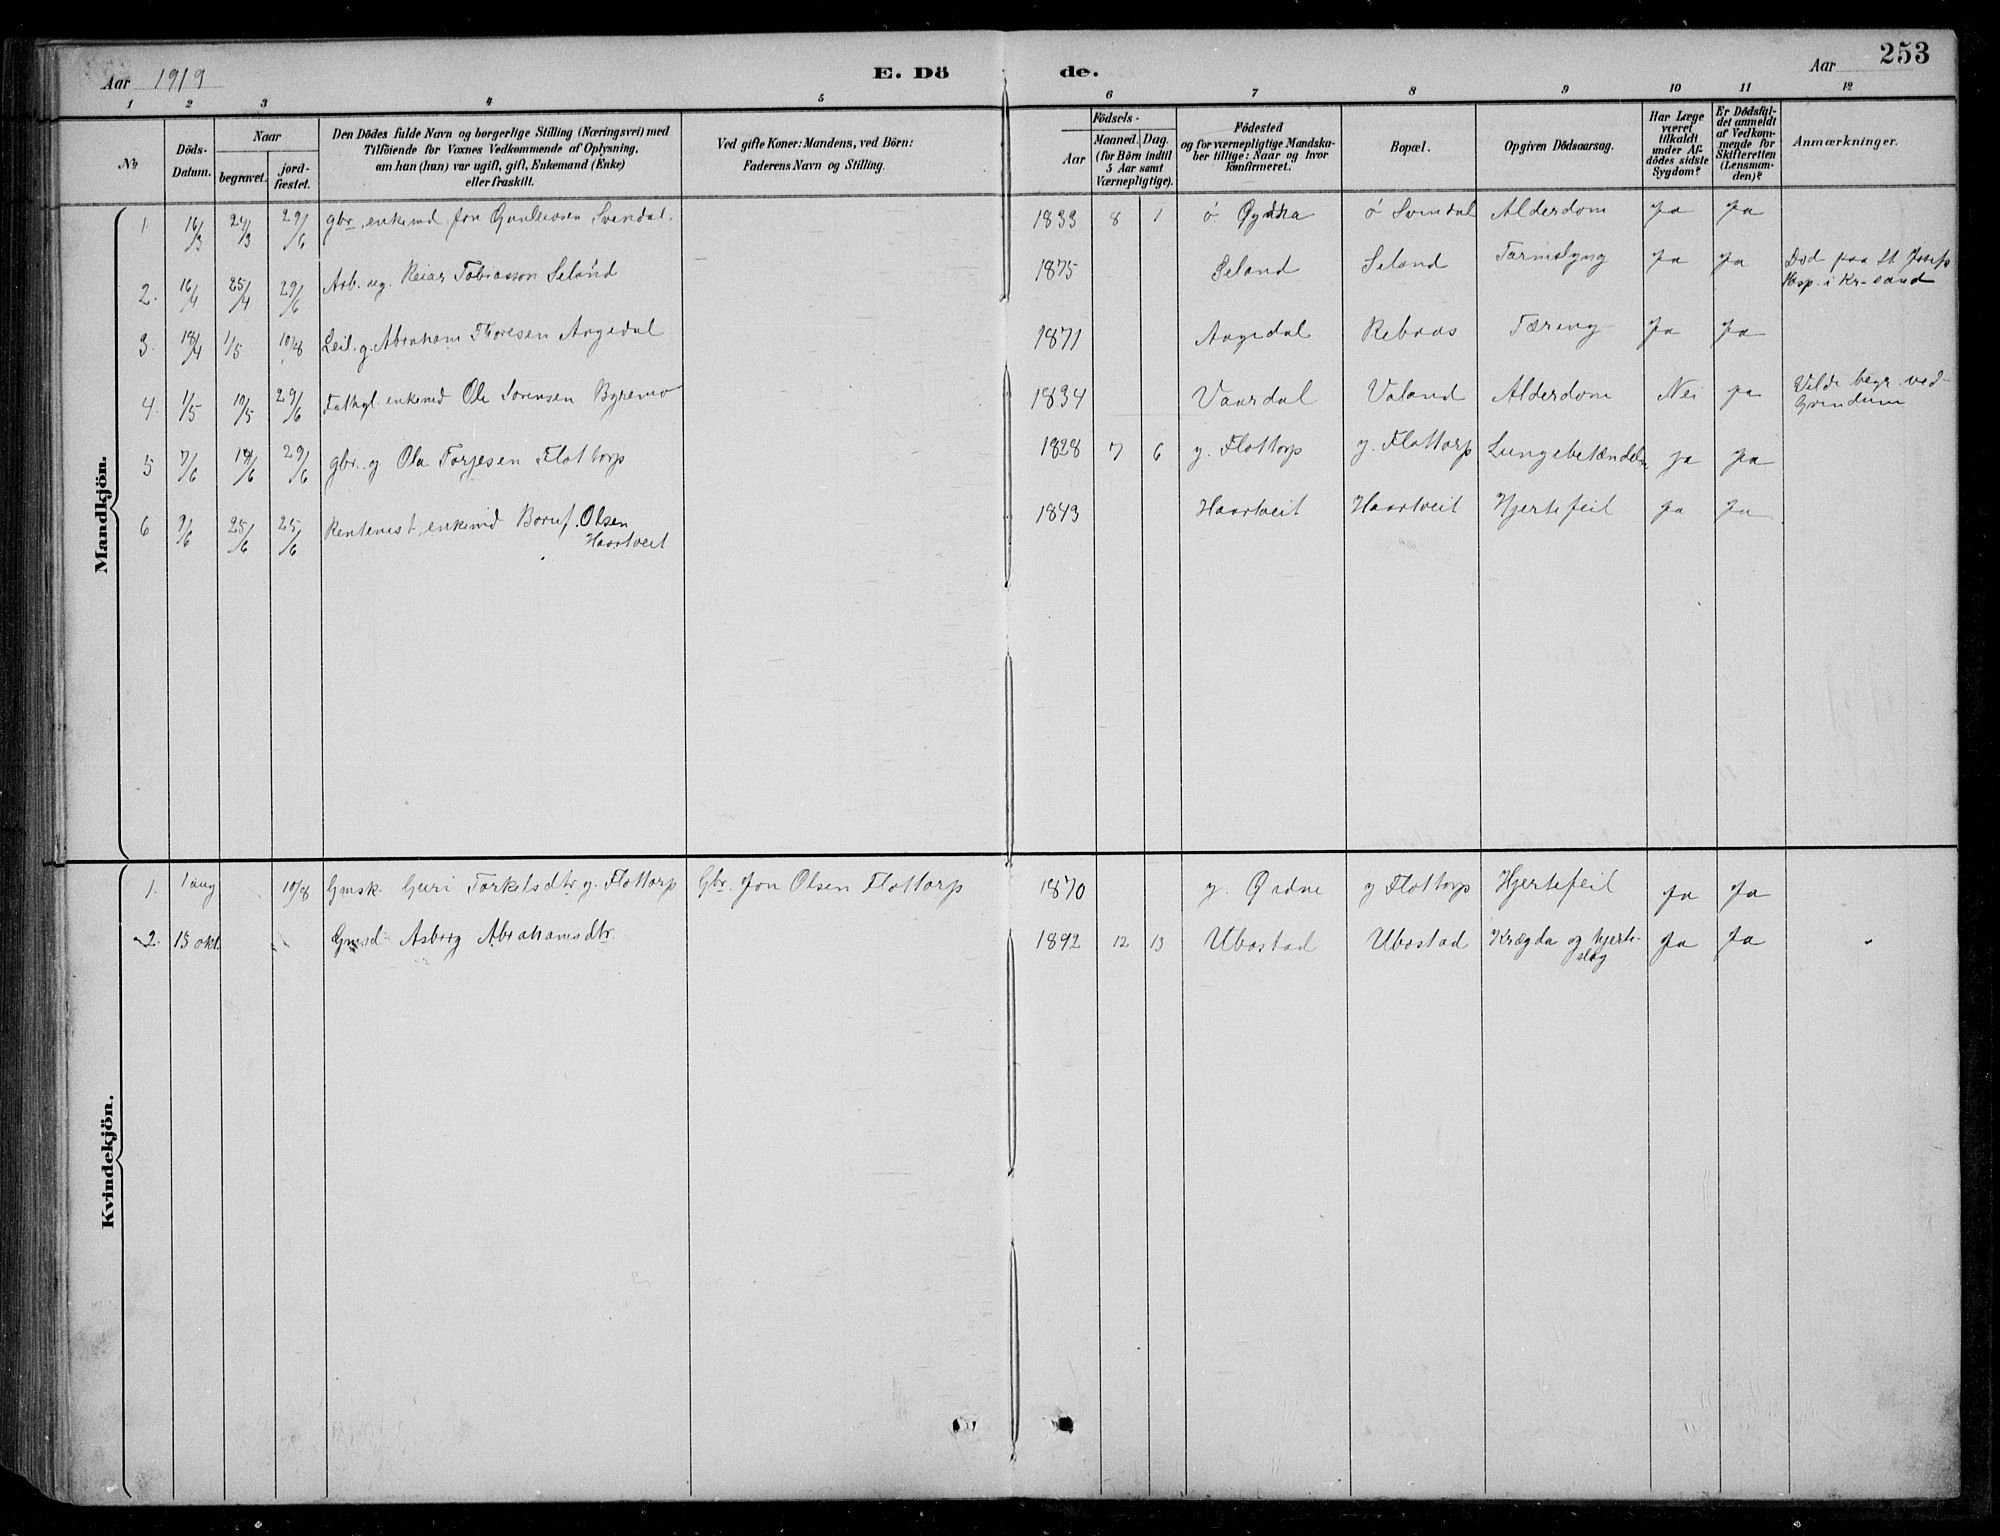 Aar 1919
E. Dö
de.
Aar
253
1 2 3 4 5 6 7 8 9 10 11 12
No
Döds-Datum.
Naar
begravet.
jord-fæstet.
Den Dödes fulde Navn og borgerlige Stilling (Næringsvei) med
Tilföiende for Voxnes Vedkommende af Oplysning,
om han (hun) var ugift, gift, Enkemand (Enke)
eller fraskilt.
Ved gifte Koner: Mandens, ved Börn:
Faderens Navn og Stilling.
Födsels-
Aar
Maaned. Dag.
(for Börn indtil
5 Aar samt
Værnepligtige).
Födested
og for værnepligtige Mandska-
ber tillige: Naar og hvor
konfirmeret.
Bopæl.
Opgiven Dödsaarsag.
Har Læge
været
tilkaldt
under Af-
dödes sidste
Sygdom?
Er Dödsfal-
det anmeldt
af Vedkom-
mende for
Skifteretten
(Lensman-
den)?
Anmærkninger.
Mandkjön.
1. 16/3 24/3 29/6 gbr. enkemd Jon Gunleivsen Svendal. 1833 8 1 ö. ö Svindal Alderdom Ja Ja
2. 16/4 25/4 29/6 Arb. ug. Reiar Tobiasson Seland 1875 Seland Seland Tarmslyng Ja Ja Död paa St. Josefs
Hosp. i Kr-sand
3. 18/4 1/5 10/8 Leil. g. Abraham Thoresen Aagedal 1871 Aagedal Rebaas Tæring Ja Ja
4. 1/5 10/5 29/6 Fatkgl. enkemd Ole Sorensen Byremo 1834 Vaardal Valand Alderdom Nei Ja Vilde begr. ved
Grindum
5 7/6 14/6 29/6 gbr. g Ola Torjesen Flottorp 1828 7 6 y. Flottorp y. Flottorp Lungebetændelse Ja Ja
6 9/6 25/6 25/6 Rentenist, enkemd Boruf. Olsen
Haartveit 1843 Haartveit Haartveit Hjertefeil Ja Ja
Kvindekjön.
1. 1 aug 10/8 Gmsk. Guri Torkelsdtr y. Flottorp Gbr. Jon Olsen Flottorp 1870 y. y Flottorp Hjertefeil Ja Ja
2. 15 okt. Gmsd. Asborg Abrahamsdtr. 1892 12 13 Ubostad Ubostad Krægda og hjerte-
slag Ja Ja